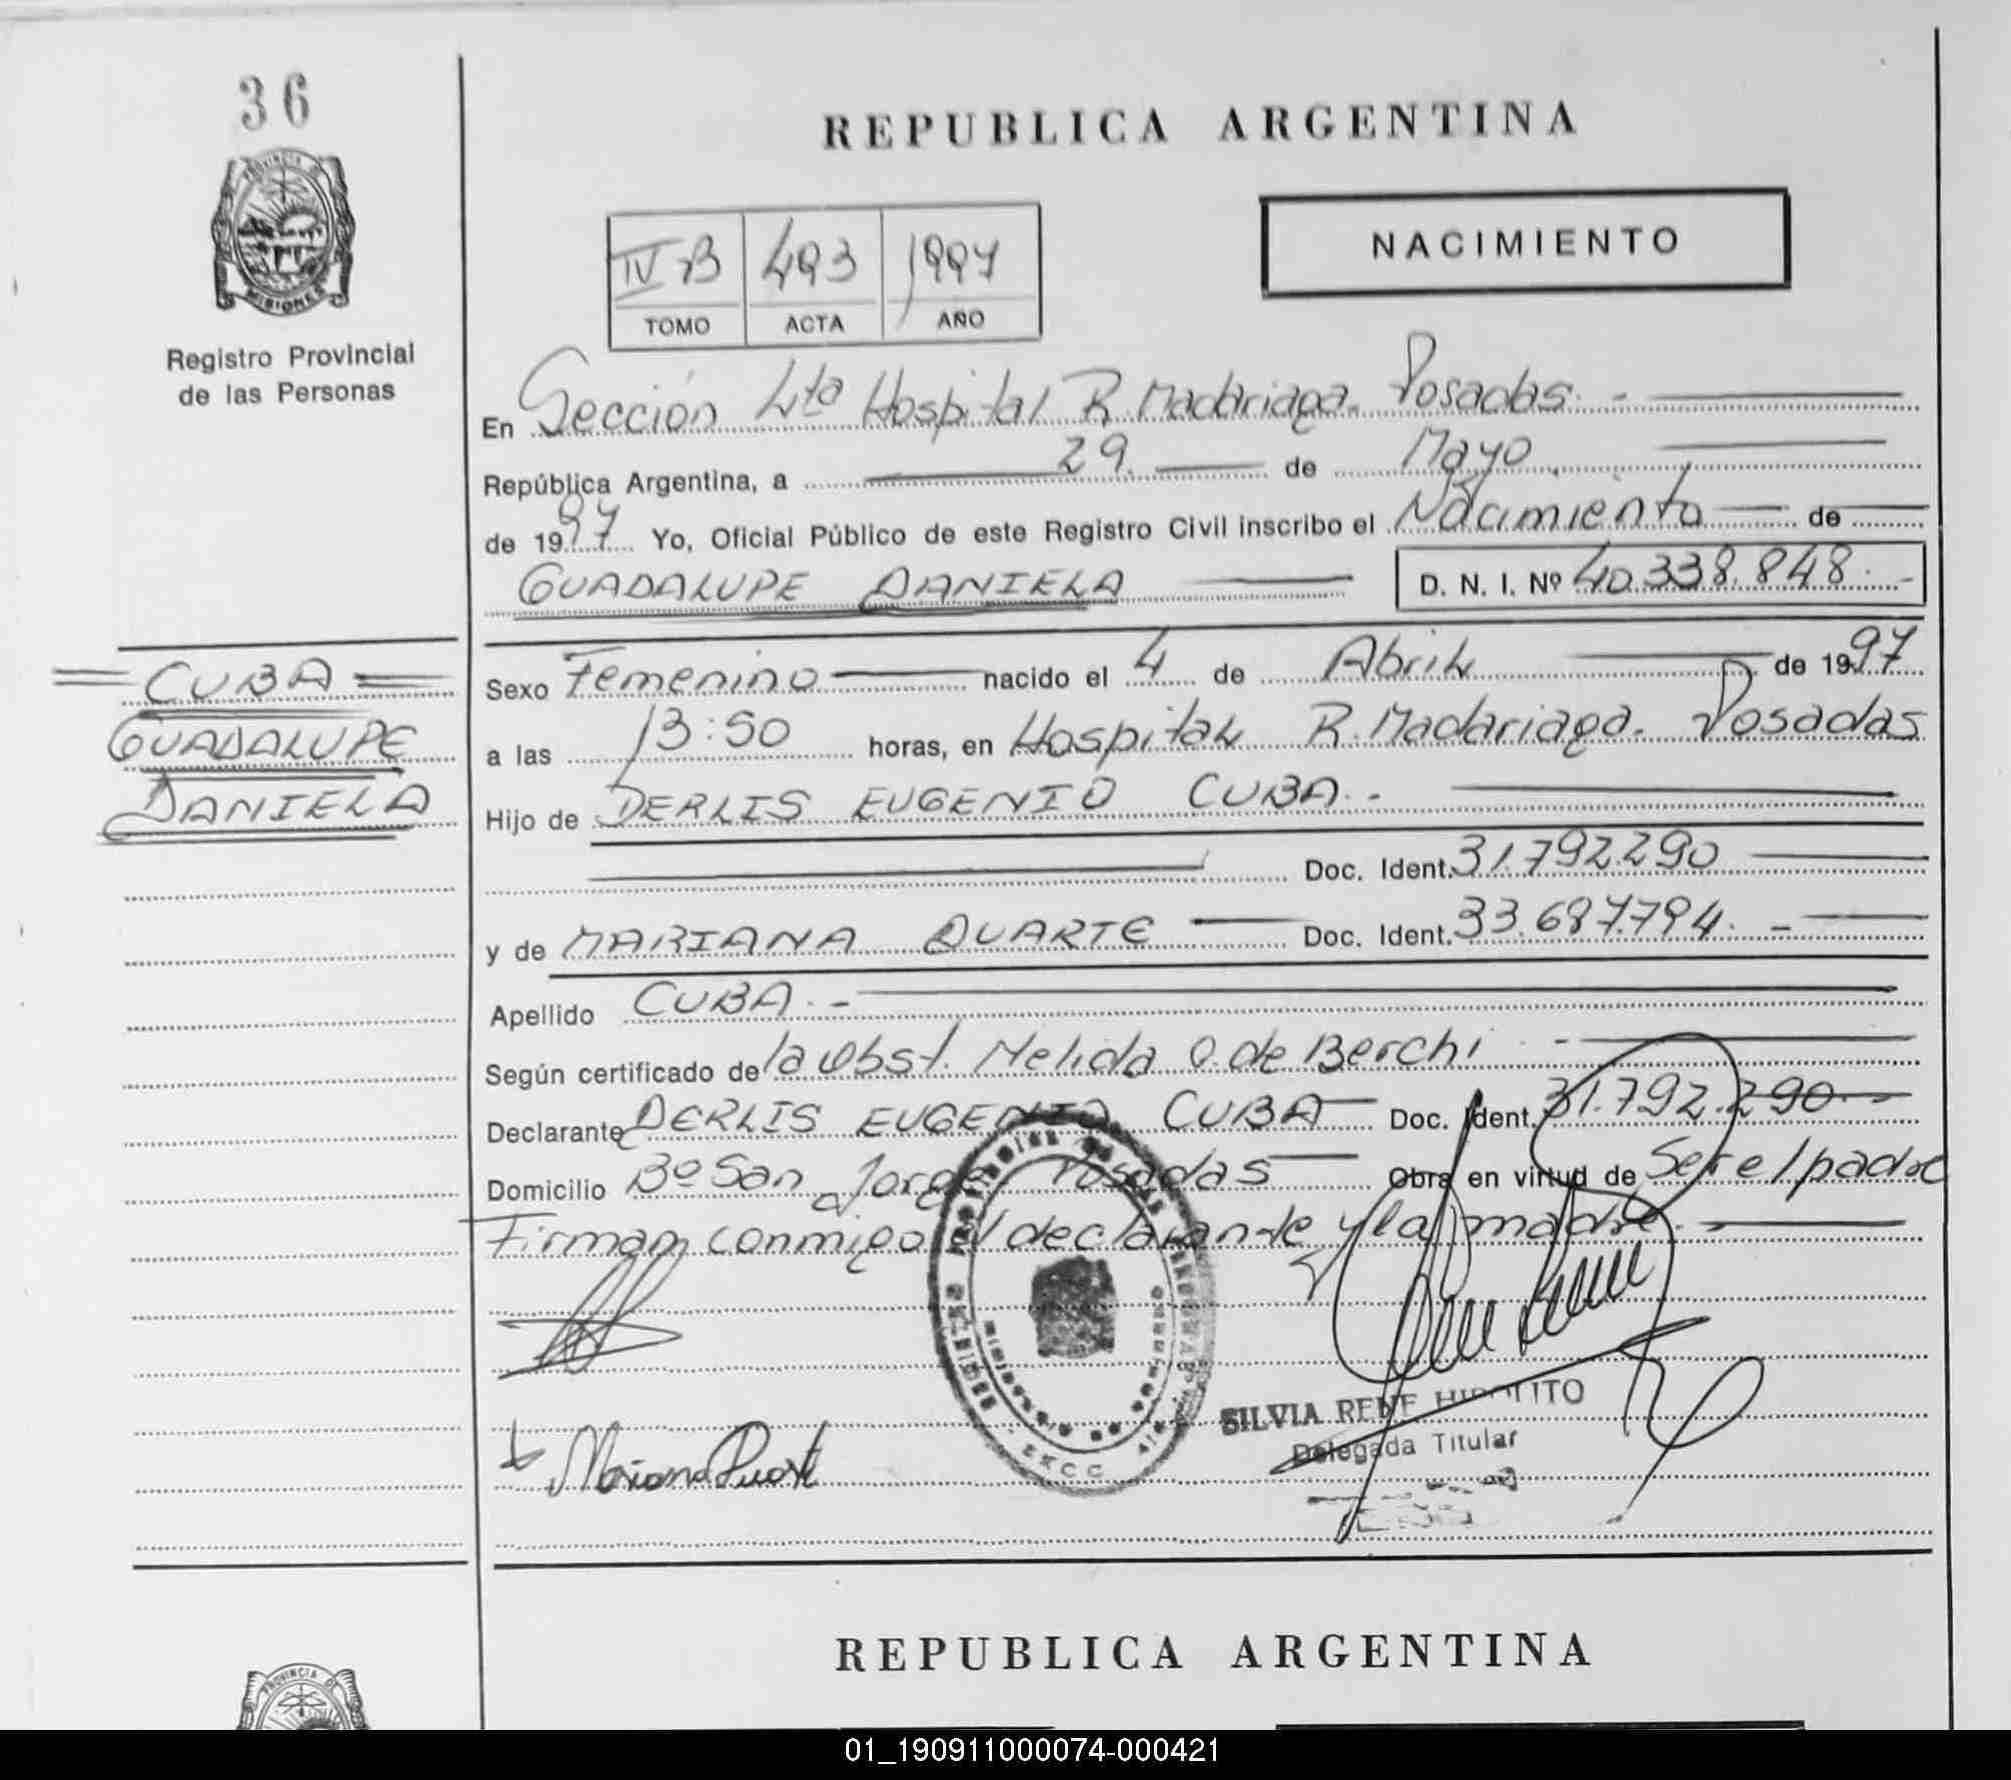 36
PROVINCIA DE
MISIONES
Registro Provincial
de las Personas
REPUBLICA ARGENTINA
NACIMIENTO
IV B 493 1997
TOMO ACTA AÑO
En Sección 4ta Hospital R. Madariaga. Posadas. -
República Argentina, a 29. de Mayo
de 1997 Yo, Oficial Público de este Registro Civil inscribo el Nacimiento de
GUADALUPE DANIELA D. N. I. Nº 40.338.848. -
CUBA
GUADALUPE
DANIELA
Sexo Femenino nacido el 4 de Abril de 1997
a las 13:50 horas, en Hospital R. Madariaga. Posadas
Hijo de DERLIS EUGENIO CUBA. -
Doc. Ident. 31.792.290
y de MARIANA DUARTE Doc. Ident. 33.687.794. -
Apellido CUBA. -
Según certificado de la Obst. Nelida O. de Berchi -
Declarante DERLIS EUGENIO CUBA Doc. Ident. 31.792.290
Domicilio Bº San Jorge Posadas Obra en virtud de Ser el padre
Firman conmigo el declarante y la madre.
SILVIA RENE HIPOLITO
Delegada Titular
Mariana Duarte
REPUBLICA ARGENTINA
PROVINCIA DE
01_190911000074-000421